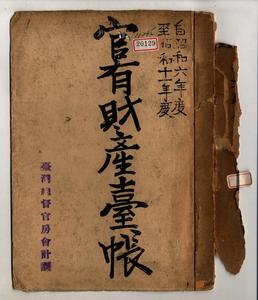 自昭和六年度
至昭和十一年度
20129
官有財產臺帳
臺灣總督官房會計課